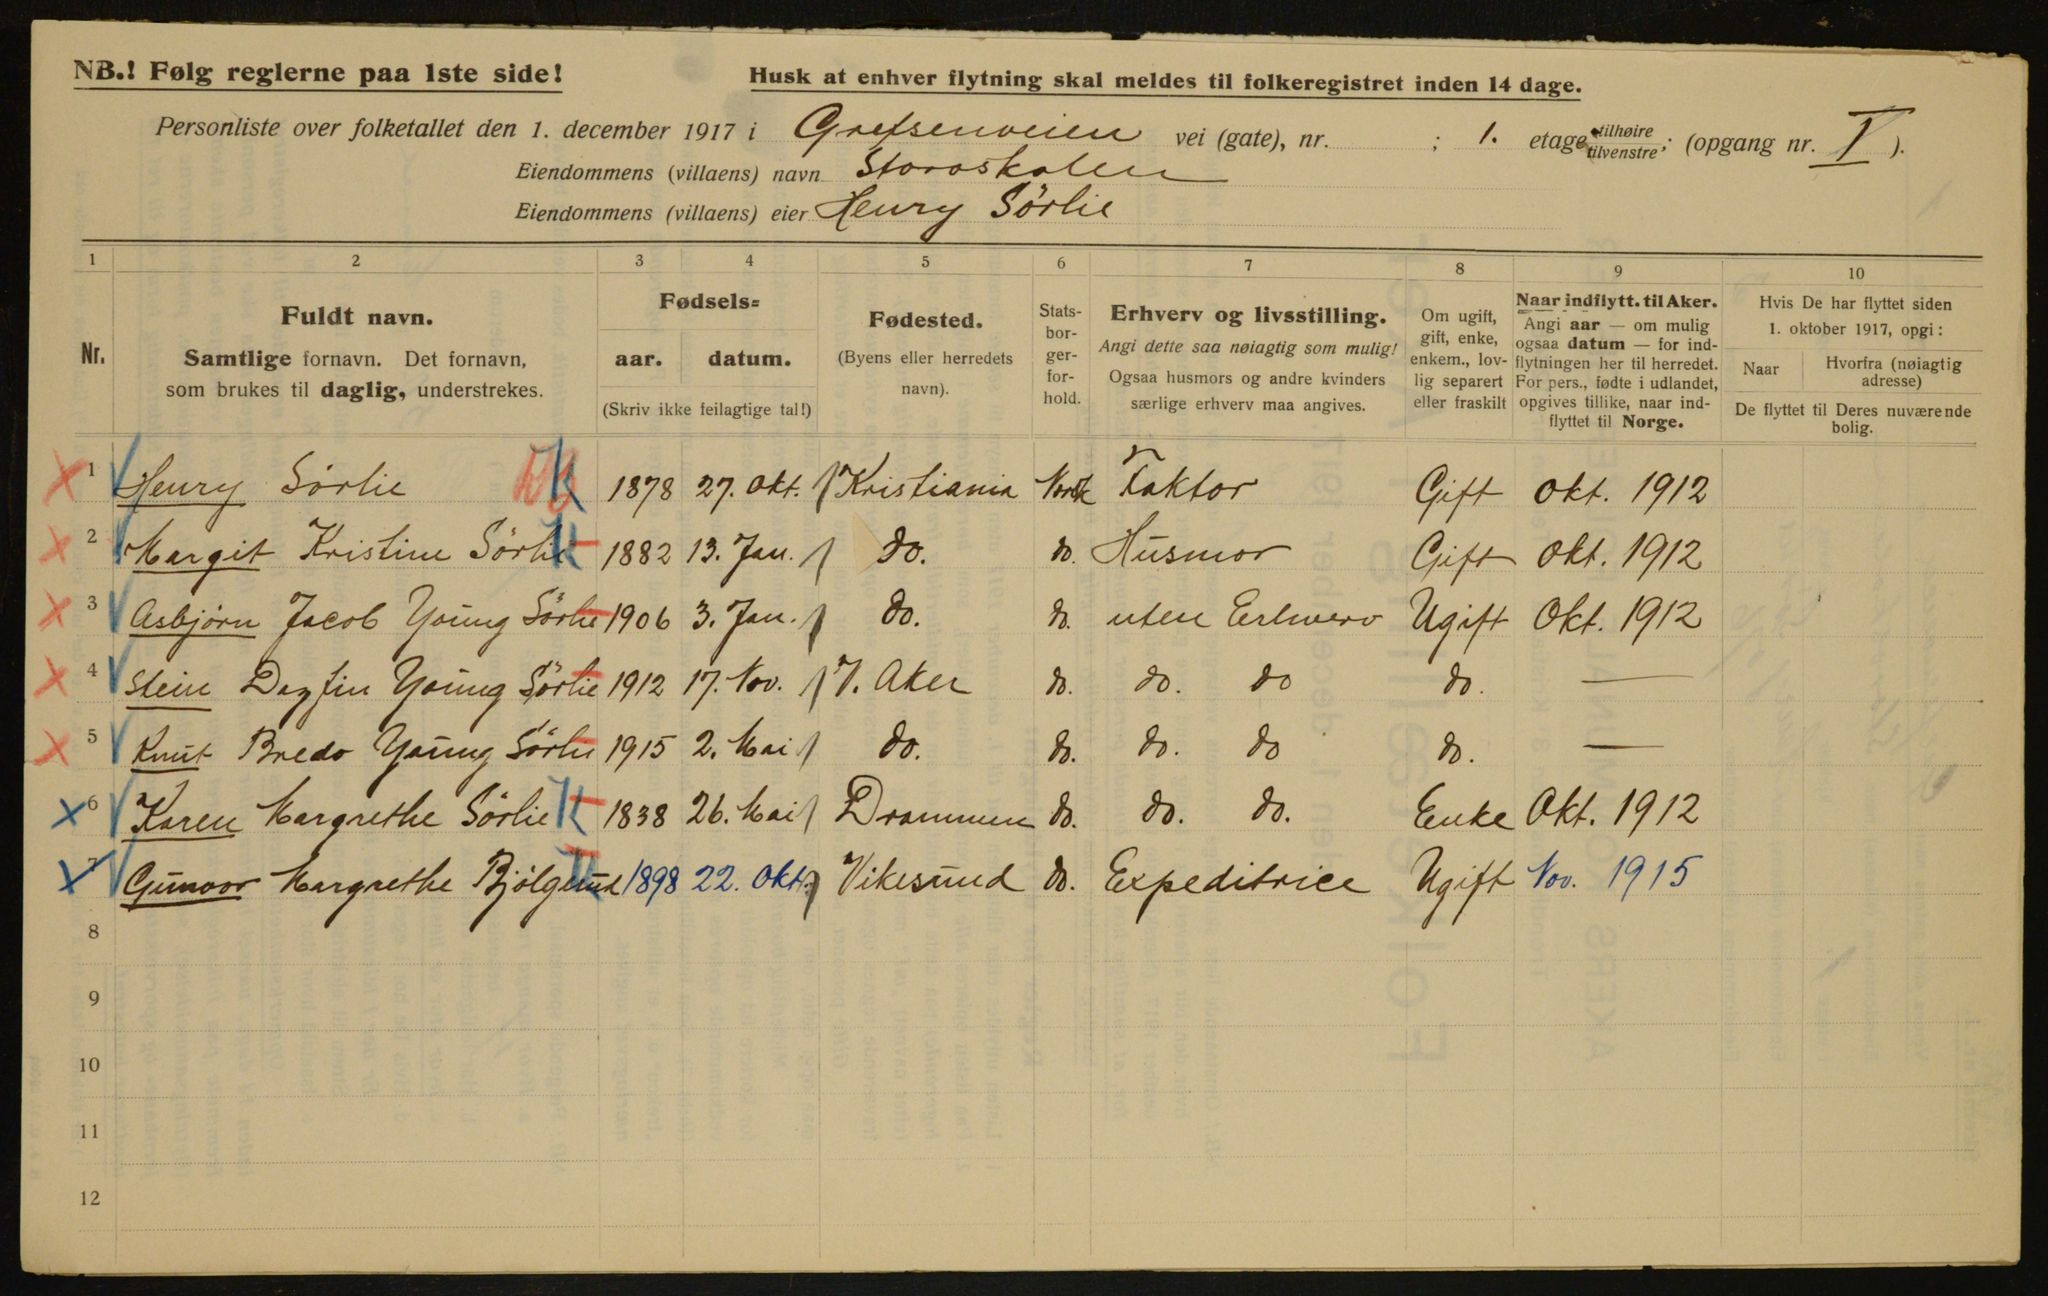 NB.! Følg reglerne paa 1ste side!
Husk at enhver flytning skal meldes til folkeregistret inden 14 dage.
Personliste over folketallet den 1. december 1917 i Grefsenveien vei (gate), nr. ; 1. etage tilhøire tilvenstre; (opgang nr. I ).
Eiendommens (villaens) navn Storoskolen
Eiendommens (villaens) eier Henry Sörlie
1 2 3 4 5 6 7 8 9 10
Nr.
Fuldt navn.
Samtlige fornavn. Det fornavn,
som brukes til daglig, understrekes.
Fødsels=
aar. datum.
(Skriv ikke feilagtige tal!)
Fødested.
(Byens eller herredets
navn).
Stats-
bor-
ger-
for-
hold.
Erhverv og livsstilling.
Angi dette saa nøiagtig som mulig!
Ogsaa husmors og andre kvinders
særlige erhverv maa angives.
Om ugift,
gift, enke,
enkem., lov-
lig separert
eller fraskilt
Naar indflytt. til Aker.
Angi aar — om mulig
ogsaa datum — for ind-
flytningen her til herredet.
For pers., fødte i udlandet,
opgives tillike, naar ind-
flyttet til Norge.
Hvis De har flyttet siden
1. oktober 1917, opgi:
Naar Hvorfra (nøiagtig
adresse)
De flyttet til Deres nuværende
bolig.
1 Henry Sörlie 1878 27. Okt. Kristiania Norsk Faktor Gift Okt. 1912
2 Margit Kristine Sörlie 1882 13. Jan. do. do. Husmor Gift Okt. 1912
3 Asbjörn Jacob Young Sörlie 1906 3. Jan. do. do. uten Erhverv Ugift Okt. 1912
4 Stein Dagfin Young Sörlie 1912 17. Nov. V. Aker do. do. do do. —
5 Knut Bredo Young Sörlie 1915 2. Mai do. do. do. do do. —
6 Karen Margrethe Sörlie 1838 26. Mai Drammen do. do. do. Enke Okt. 1912
7 Gunvor Margrethe Bjölgerud 1898 22. Okt. Vikesund do. Expeditrice Ugift Nov. 1915
8
9
10
11
12